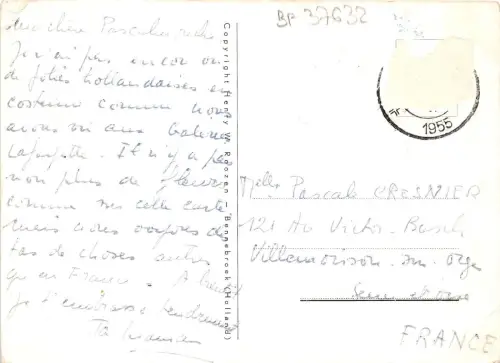 BP 37632
Ma chère Pascale
Je n'ai pas encore vu
de jolies hollandaises en
costume comme nous
avons vu aux Galeries
Lafayette. Il n'y a pas
non plus de fleurs
comme sur cette carte
mais nous voyons des
tas de choses autres
qu'en France. A bientôt
je t'embrasse tendrement
Ta maman
Copyright Henry W. Roozen – Bennebroek (Holland)
1955
Melle Pascale CRESNIER
121 Av Victor-Basch
Villemoisson-sur-Orge
Seine et Oise
FRANCE